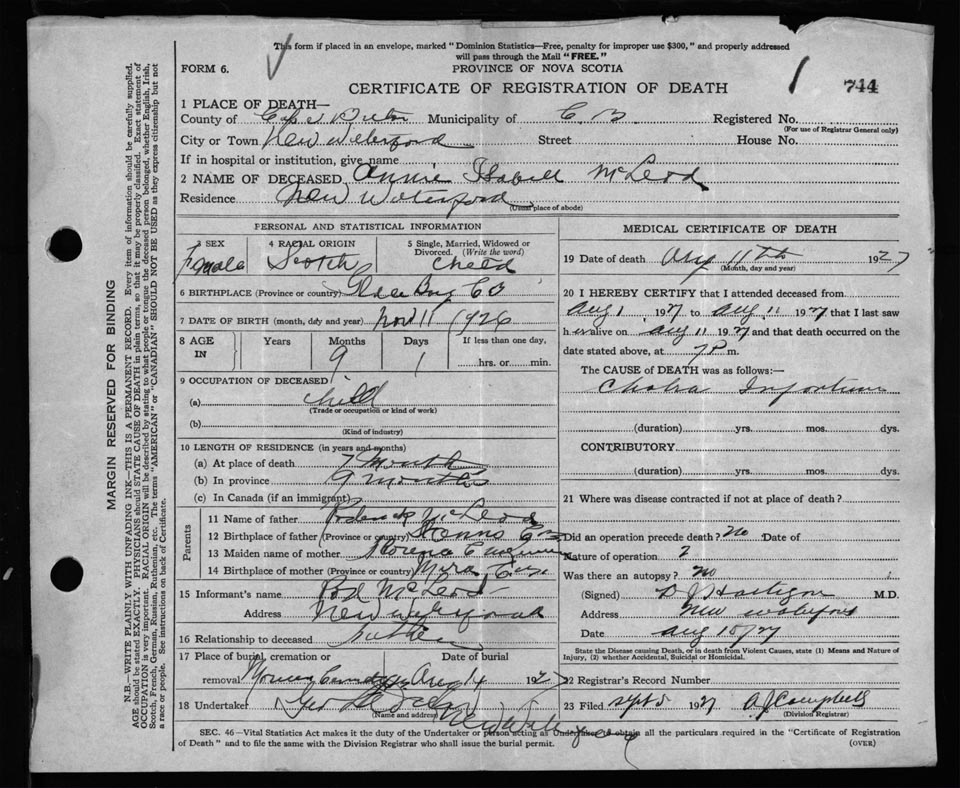 This form if placed in an envelope, marked "Dominion Statistics—Free, penalty for improper use $300," and properly addressed
will pass through the Mail "FREE."
FORM 6.
PROVINCE OF NOVA SCOTIA
CERTIFICATE OF REGISTRATION OF DEATH
744
1 PLACE OF DEATH—
County of Cape Breton Municipality of C. B. Registered No.
(For use of Registrar General only)
City or Town New Waterford Street House No.
If in hospital or institution, give name
2 NAME OF DECEASED Annie Isabell McLeod
Residence New Waterford
(Usual place of abode)
PERSONAL AND STATISTICAL INFORMATION
3 SEX Female
4 RACIAL ORIGIN Scotch
5 Single, Married, Widowed or Divorced. (Write the word) Child
6 BIRTHPLACE (Province or country) Glace Bay C B
7 DATE OF BIRTH (month, day and year) Nov 11 1926
8 AGE IN Years Months 9 Days 1 If less than one day, hrs. or min.
9 OCCUPATION OF DECEASED
(a) child
(Trade or occupation or kind of work)
(b)
(Kind of industry)
10 LENGTH OF RESIDENCE (in years and months)
(a) At place of death 7 Month
(b) In province 9 months
(c) In Canada (if an immigrant)
Parents
11 Name of father Roderick McLeod
12 Birthplace of father (Province or country)
13 Maiden name of mother
14 Birthplace of mother (Province or country) Mira
15 Informant's name Rod McLeod
Address New Waterford
16 Relationship to deceased father
17 Place of burial, cremation or removal Date of burial Aug 14 1927
18 Undertaker Geo
(Name and address) New Waterford
MEDICAL CERTIFICATE OF DEATH
19 Date of death Aug 11th 1927
(Month, day and year)
20 I HEREBY CERTIFY that I attended deceased from
Aug 1 1927 to Aug 11 1927 that I last saw
her alive on Aug 11 1927 and that death occurred on the
date stated above, at 7 P m.
The CAUSE of DEATH was as follows:—
Cholra Infantum
(duration) yrs. mos. dys.
CONTRIBUTORY
(duration) yrs. mos. dys.
21 Where was disease contracted if not at place of death?
Did an operation precede death? no Date of
Nature of operation ?
Was there an autopsy? no
(Signed) M.D.
Address New Waterford
Date Aug 15/27
State the Disease causing Death, or in death from Violent Causes, state (1) Means and Nature of
Injury, (2) whether Accidental, Suicidal or Homicidal.
22 Registrar's Record Number
23 Filed Sept 5 1927 A J Campbell
(Division Registrar)
SEC. 46—Vital Statistics Act makes it the duty of the Undertaker or person acting as Undertaker to obtain all the particulars required in the "Certificate of Registration
of Death" and to file the same with the Division Registrar who shall issue the burial permit.
(OVER)
MARGIN RESERVED FOR BINDING
N.B.—WRITE PLAINLY WITH UNFADING INK—THIS IS A PERMANENT RECORD. Every item of information should be carefully supplied.
AGE should be stated EXACTLY. PHYSICIANS should STATE CAUSE OF DEATH in plain terms, so that it may be properly classified. Exact statement of
OCCUPATION is very important. RACIAL ORIGIN will be described by stating to what people or tongue the deceased person belonged, whether English, Irish,
Scotch, French, German, Russian, Ruthenian, etc. The terms "AMERICAN" or "CANADIAN" SHOULD NOT BE USED as they express citizenship but not
a race or people. See instructions on back of Certificate.